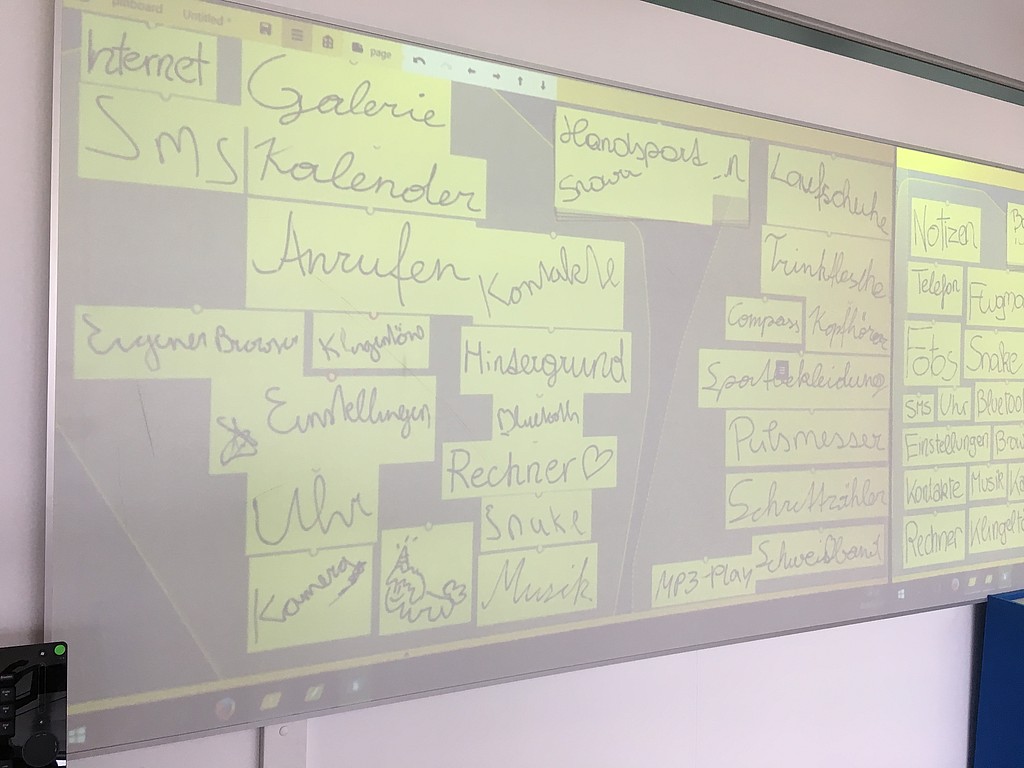 pinboard Untitled *
page
Internet
Galerie
SMS
Kalender
Anrufen
Kontakte
Eigener Browser
Klingeltöne
Hintergrund
Einstellungen
Bluetooth
Rechner ♡
Uhr
Snake
Kamera
Musik
Handsport
Laufschuhe
Trinkflasche
Compass
Kopfhörer
Sportbekleidung
Pulsmesser
Schrittzähler
Schweißband
MP3-Play
Notizen
Telefon
Flugmo
Fotos
Snake
SMS
Uhr
Einstellungen
Brow
Kontakte
Musik
Rechner
Klingeltö